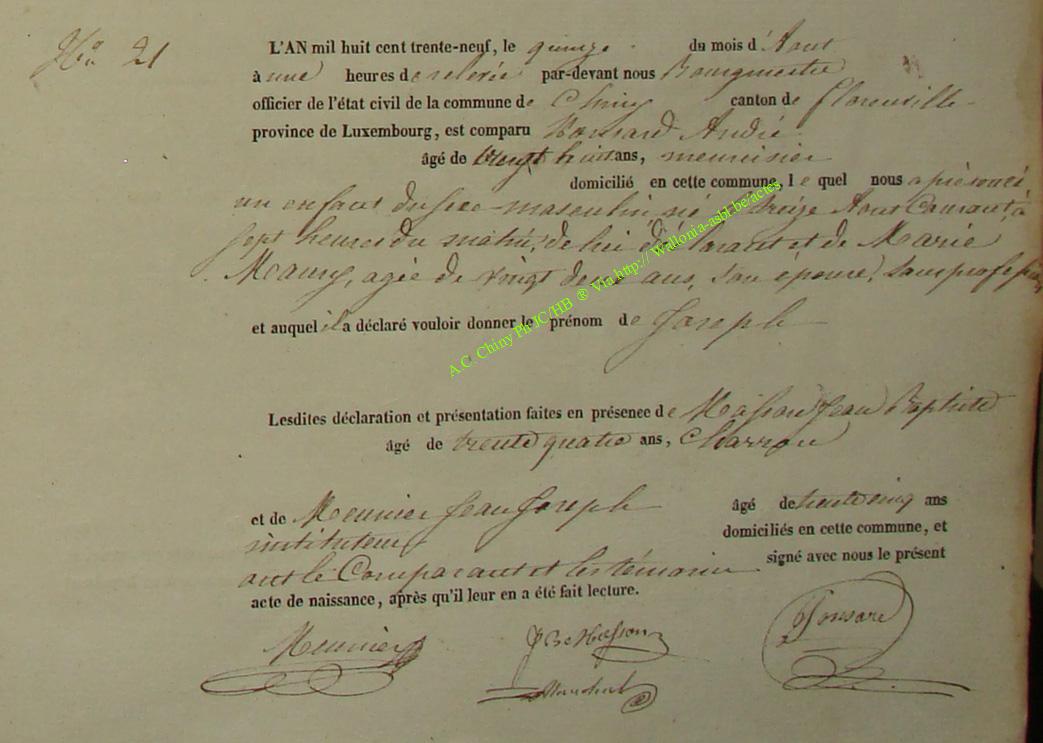 No. 21
L'AN mil huit cent trente-neuf, le quinze du mois d'Aout
à une heures de relevée par-devant nous Bourgmestre
officier de l'état civil de la commune de Chiny canton de florenville
province de Luxembourg, est comparu André
âgé de vingt huit ans, menuisier
domicilié en cette commune, le quel nous a présenté
un enfant du sexe masculin né le treize Aout Courant, à
sept heures du matin, de lui déclarant et de Marie
agée de vingt deux ans, son épouse, sans profession
et auquel il a déclaré vouloir donner le prénom de Joseph
A.C. Chiny Ph JC/HB ® Via http://Wallonia-asbl.be/actes
Lesdites déclaration et présentation faites en présence de Masson Jean Baptiste
âgé de trente quatre ans, Charron
et de Meunier Jean Joseph âgé de trente cinq ans
instituteur domiciliés en cette commune, et
ont le Comparant et les témoins signé avec nous le présent
acte de naissance, après qu'il leur en a été fait lecture.
Meunier JBe Masson